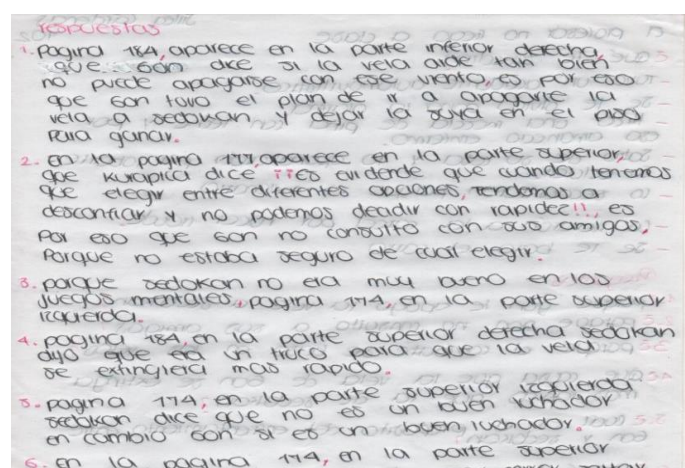 respuestas
1. pagina 184, aparece en la parte inferior derecha,
que gon dice si la vela arde tan bien
no puede apagarse con ese viento, es por eso
que gon tuvo el plan de ir a apagarle la
vela a sedokan y dejar la suya en el piso
para ganar.
2. en la pagina 177, aparece en la parte superior,
que kurapica dice ¡¡es evidente que cuando tenemos
que elegir entre diferentes opciones, tendemos a
desconfiar y no podemos decidir con rapidez!!, es
por eso que gon no consulto con sus amigos,
porque no estaba seguro de cual elegir.
3. porque sedokan no era muy bueno en los
juegos mentales, pagina 174, en la parte superior
izquierda.
4. pagina 184, en la parte superior derecha sedokan
dijo que era un truco para que la vela
se extinguiera mas rapido.
5. pagina 174, en la parte superior izquierda
sedokan dice que no es un buen luchador
en cambio gon si es un buen luchador.
6. en la pagina 174, en la parte superior